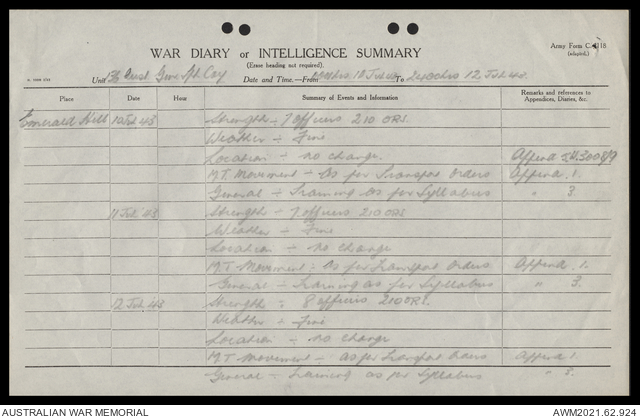 Army Form C.2118
(adapted.)
WAR DIARY or INTELLIGENCE SUMMARY
(Erase heading not required).
Unit Aust Gen Coy Date and Time.—From 10 Jul 43 To 2400hrs 12 Jul 43.
Place Date Hour Summary of Events and Information Remarks and references to Appendices, Diaries, &c.
Emerald Hill 10 Jul 43 Strength ÷ 7 officers 210 ORS.
Weather ÷ Fine
Location ÷ no change. Append
M.T. Movement ÷ As per Transport Orders Append. 1.
General ÷ Training as per Syllabus " 3.
11 Jul 43 Strength ÷ 7 officers 210 ORS
Weather ÷ Fine
Location ÷ no change
M.T. Movement : As per Transport Orders Append. 1.
General ÷ Training as per Syllabus " 3.
12 Jul 43 Strength : 8 officers 210 ORS.
Weather ÷ Fine
Location ÷ no change
M.T. Movement ÷ as per Transport Orders Append 1.
General ÷ Training as per Syllabus " 3.
AUSTRALIAN WAR MEMORIAL AWM2021.62.924